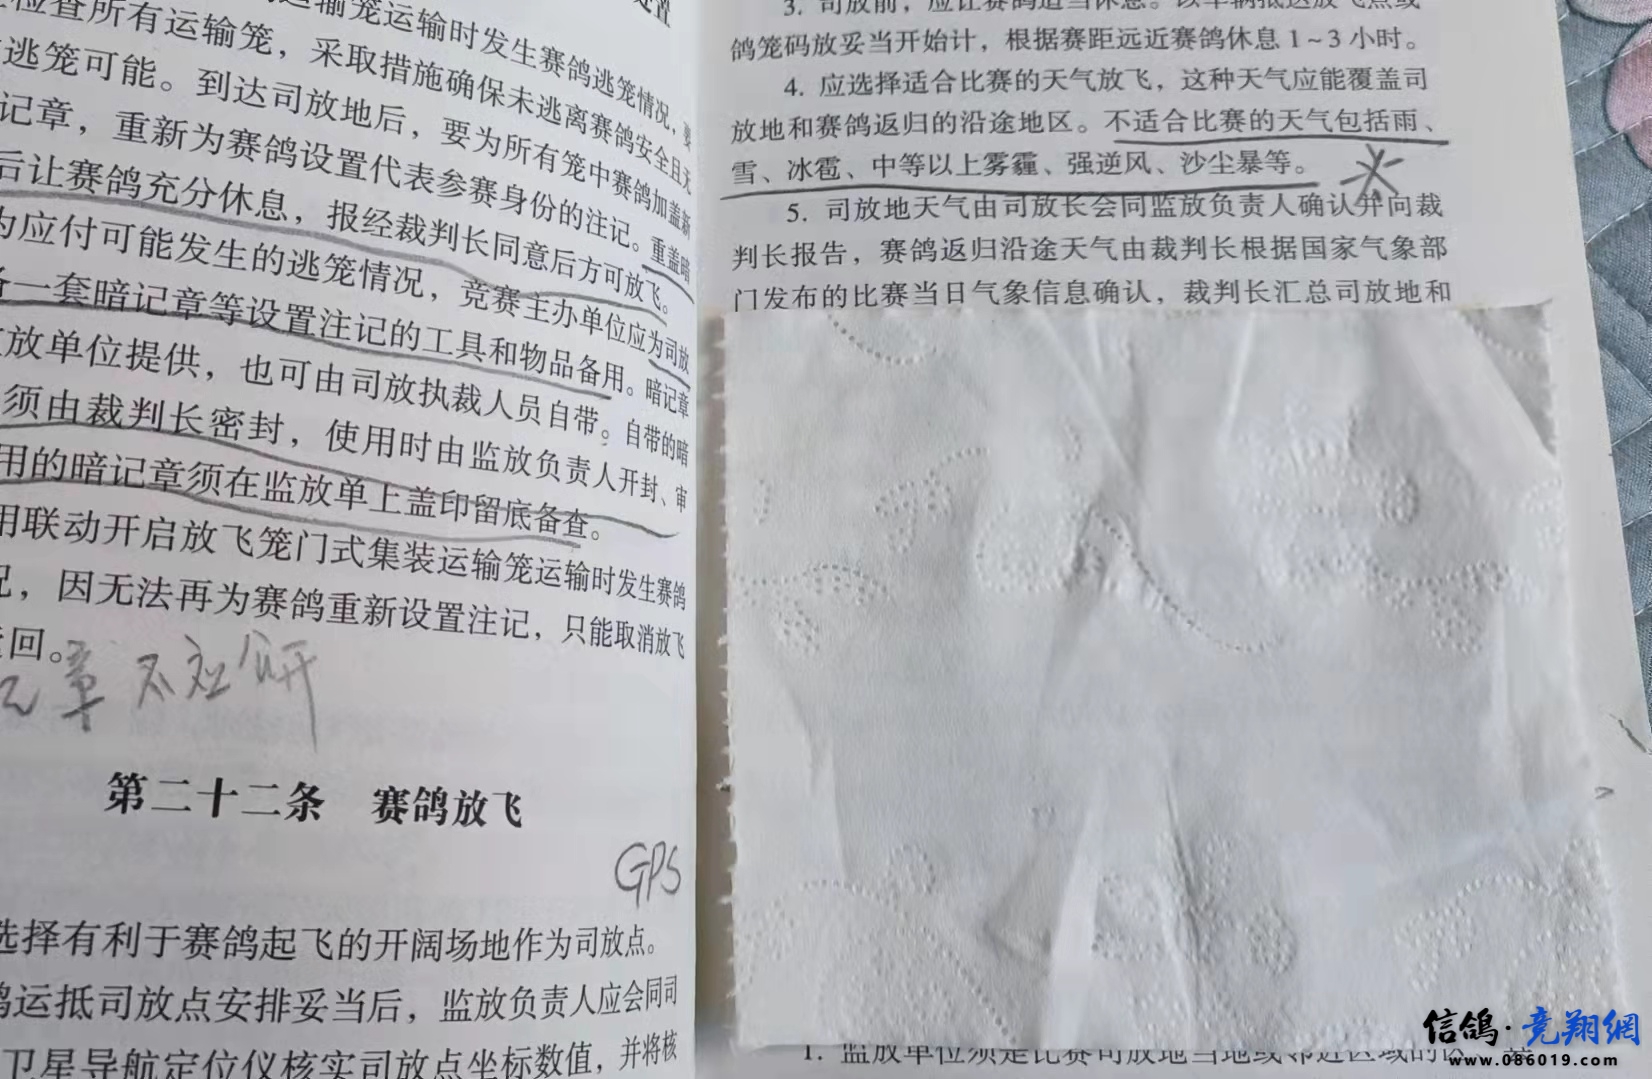 处置
运输笼运输时发生赛鸽逃笼情况，要
检查所有运输笼，采取措施确保未逃离赛鸽安全且无
逃笼可能。到达司放地后，要为所有笼中赛鸽加盖新
记章，重新为赛鸽设置代表参赛身份的注记。重盖暗
后让赛鸽充分休息，报经裁判长同意后方可放飞。
为应付可能发生的逃笼情况，竞赛主办单位应为司放
备一套暗记章等设置注记的工具和物品备用。暗记章
放单位提供，也可由司放执裁人员自带。自带的暗
须由裁判长密封，使用时由监放负责人开封、审
用的暗记章须在监放单上盖印留底备查。
用联动开启放飞笼门式集装运输笼运输时发生赛鸽
况，因无法再为赛鸽重新设置注记，只能取消放飞
回。
记章不公开
第二十二条 赛鸽放飞
GPS
选择有利于赛鸽起飞的开阔场地作为司放点。
鸽运抵司放点安排妥当后，监放负责人应会同司
卫星导航定位仪核实司放点坐标数值，并将核
3. 司放前，应让赛鸽适当休息。以车辆抵达放飞点或
鸽笼码放妥当开始计，根据赛距远近赛鸽休息1~3小时。
4. 应选择适合比赛的天气放飞，这种天气应能覆盖司
放地和赛鸽返归的沿途地区。不适合比赛的天气包括雨、
雪、冰雹、中等以上雾霾、强逆风、沙尘暴等。
5. 司放地天气由司放长会同监放负责人确认并向裁
判长报告，赛鸽返归沿途天气由裁判长根据国家气象部
门发布的比赛当日气象信息确认，裁判长汇总司放地和
1. 监放单位须是比赛司放地当地或邻近区域的
信鸽·竞翔網
www.086019.com